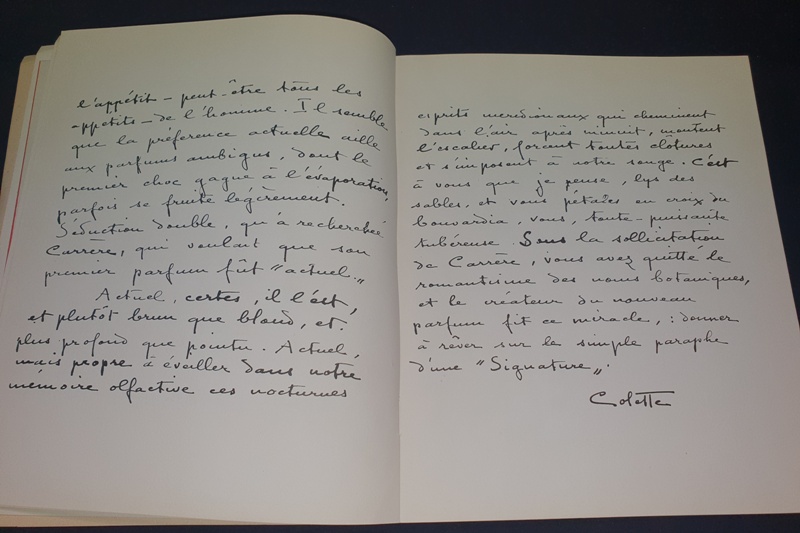 l'appétit - peut-être tous les
appétits - de l'homme. Il semble
que la préférence actuelle aille
aux parfums ambigus, dont le
premier choc gagne à l'évaporation,
parfois se fruite légèrement.
Séduction double, qu'a recherchée
Carrère, qui voulait que son
premier parfum fût "actuel".
Actuel, certes, il l'est,
et plutôt brun que blond, et
plus profond que pointu. Actuel,
mais propre à éveiller dans notre
mémoire olfactive ces nocturnes
esprits meridionaux qui cheminent
dans l'air après minuit, montent
l'escalier, forcent toutes clôtures
et s'imposent à notre songe. C'est
à vous que je pense, lys des
sables, et vous pétales en croix du
bouvardia, vous, toute-puissante
tubéreuse. Sous la sollicitation
de Carrère, vous avez quitté le
romantisme des noms botaniques,
et le créateur du nouveau
parfum fit ce miracle, : donner
à rêver sur le simple paraphe
d'une "Signature".
Colette